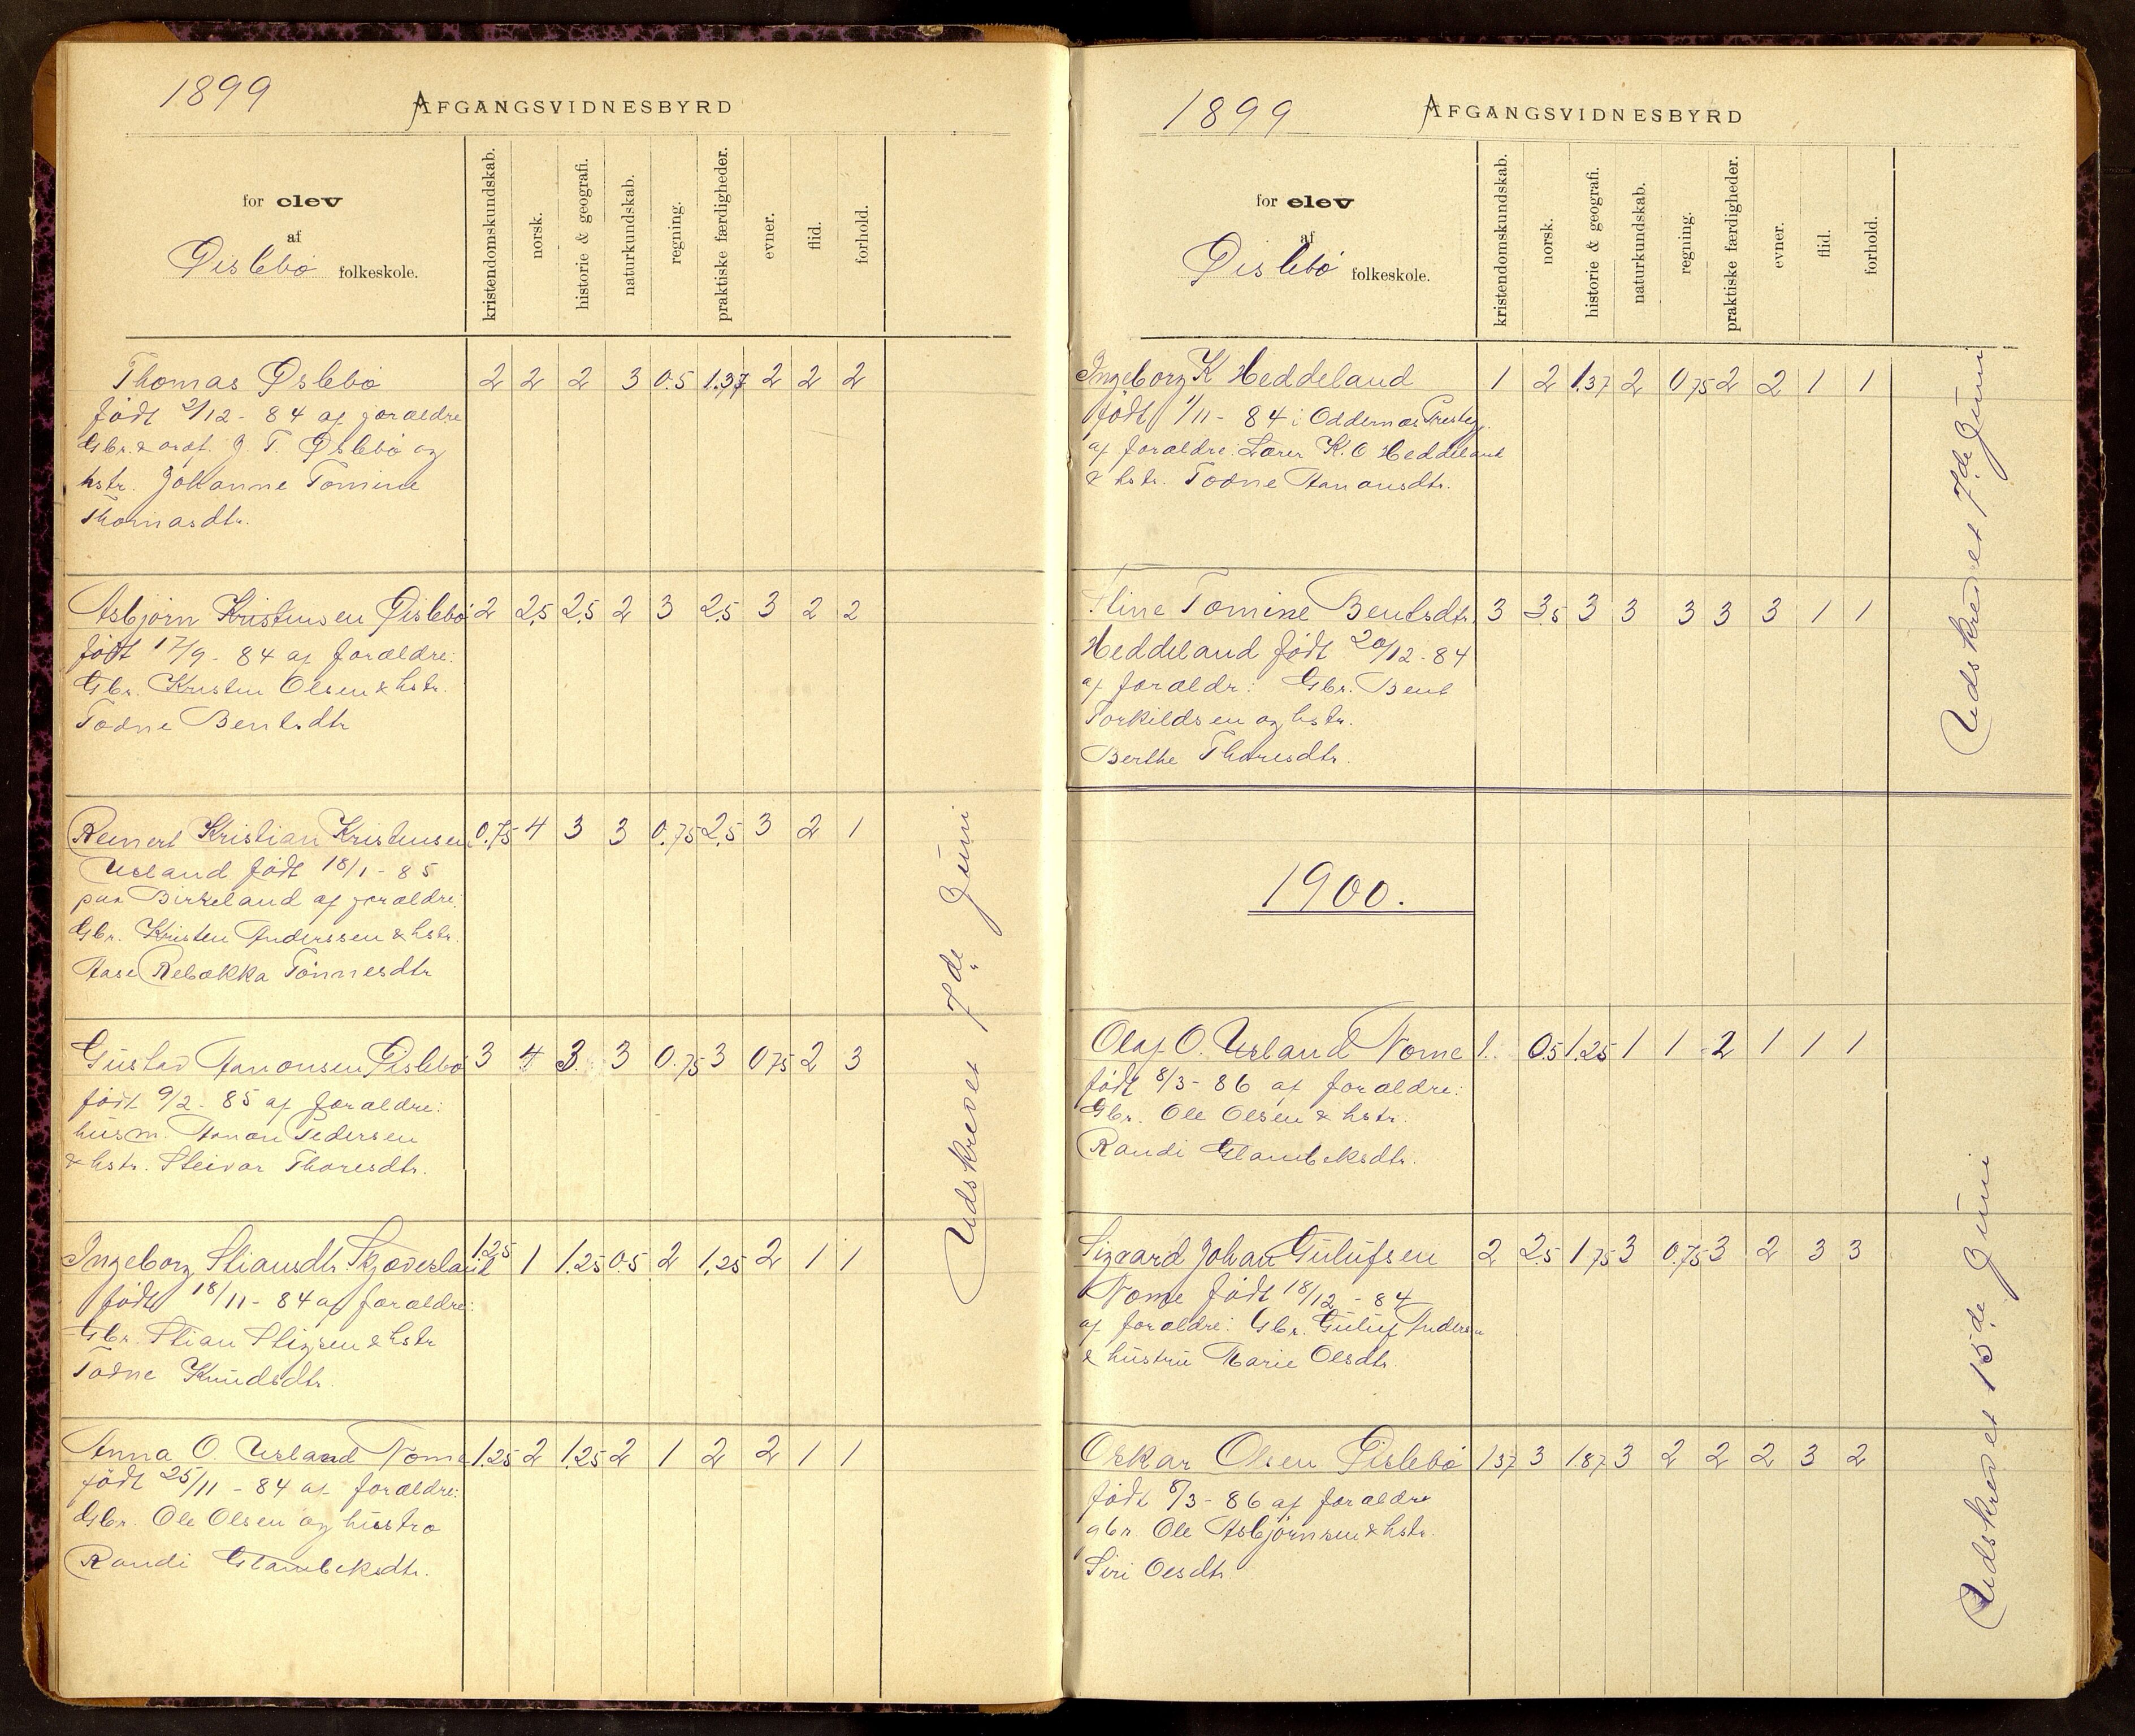 1899
AFGANGSVIDNESBYRD
for elev
af
Øislebø folkeskole.
kristendomskundskab.
norsk.
historie & geografi.
naturkundskab.
regning.
praktiske færdigheder.
evner.
flid.
forhold.
Thomas Øslebø 2 2 2 3 0.5 1.37 2 2 2
født 2/12 - 84 af forældre
Gbr. & ordf. J. T. Øslebø og
hstr. Johanne Tomine
Thomasdtr.
Asbjørn Kristensen Øislebø 2 2,5 2,5 2 3 2,5 3 2 2
født 17/9 - 84 af forældre:
Gbr. Kristen Olsen & hstr.
Todne Bentsdtr
Reinert Kristian Kristensen 0.75 4 3 3 0.75 2,5 3 2 1
Usland født 18/1 - 85
paa Birkeland af forældre:
Gbr. Kristen Anderssen & hstr.
Aase Rebækka Tønnesdtr
Gustav Aanonsen Øislebø 3 4 3 3 0.75 3 0.75 2 3
født 9/2 - 85 af forældre:
husm. Aanon Pedersen
& hstr. Steivor Thoresdtr.
Ingeborg Stiansdtr. Skjævesland 1.25 1 1.25 0.5 2 1.25 2 1 1
født 18/11 - 84 af forældre:
Gbr. Stian Stigsen & hstr
Todne Knudsdtr.
Anna O. Usland Nome 1.25 2 1.25 2 1 2 2 1 1
født 25/11 - 84 af forældre:
Gbr. Ole Olsen og hustro
Randi Glambeksdtr.
Udskrevet 7de Juni
1899
AFGANGSVIDNESBYRD
for elev
af
Øislebø folkeskole.
kristendomskundskab.
norsk.
historie & geografi.
naturkundskab.
regning.
praktiske færdigheder.
evner.
flid.
forhold.
Ingeborg K Heddeland 1 2 1.37 2 0.75 2 2 1 1
født 1/11 - 84 i Oddernæs Prestegj.
af forældre: Lærer K. O Heddeland
& hstr. Todne Aanonsdtr.
Stine Tomine Bentsdtr. 3 3.5 3 3 3 3 3 1 1
Heddeland født 20/12 - 84
af forældr: Gbr. Bent
Torkildsen og hstr.
Berthe Thoresdtr.
Udskrevet 7de Juni
1900.
Olaf O. Usland Nome 1. 0.5 1.25 1 1 2 1 1 1
født 8/3 - 86 af forældre:
Gbr. Ole Olsen & hstr.
Randi Glambeksdtr.
Sigvard Johan Gulufsen 2 2.5 1.75 3 0.75 3 2 3 3
Nome født 18/12 - 84
af forældre: Gbr. Guluf Andersen
& hustru Marie Olsdtr.
Oskar Olsen Øislebø 1.37 3 1.87 3 2 2 2 3 2
født 8/3 - 86 af forældre
gbr. Ole Asbjørnsen & hstr.
Siri Olsdtr.
Udskrevet 15de Juni